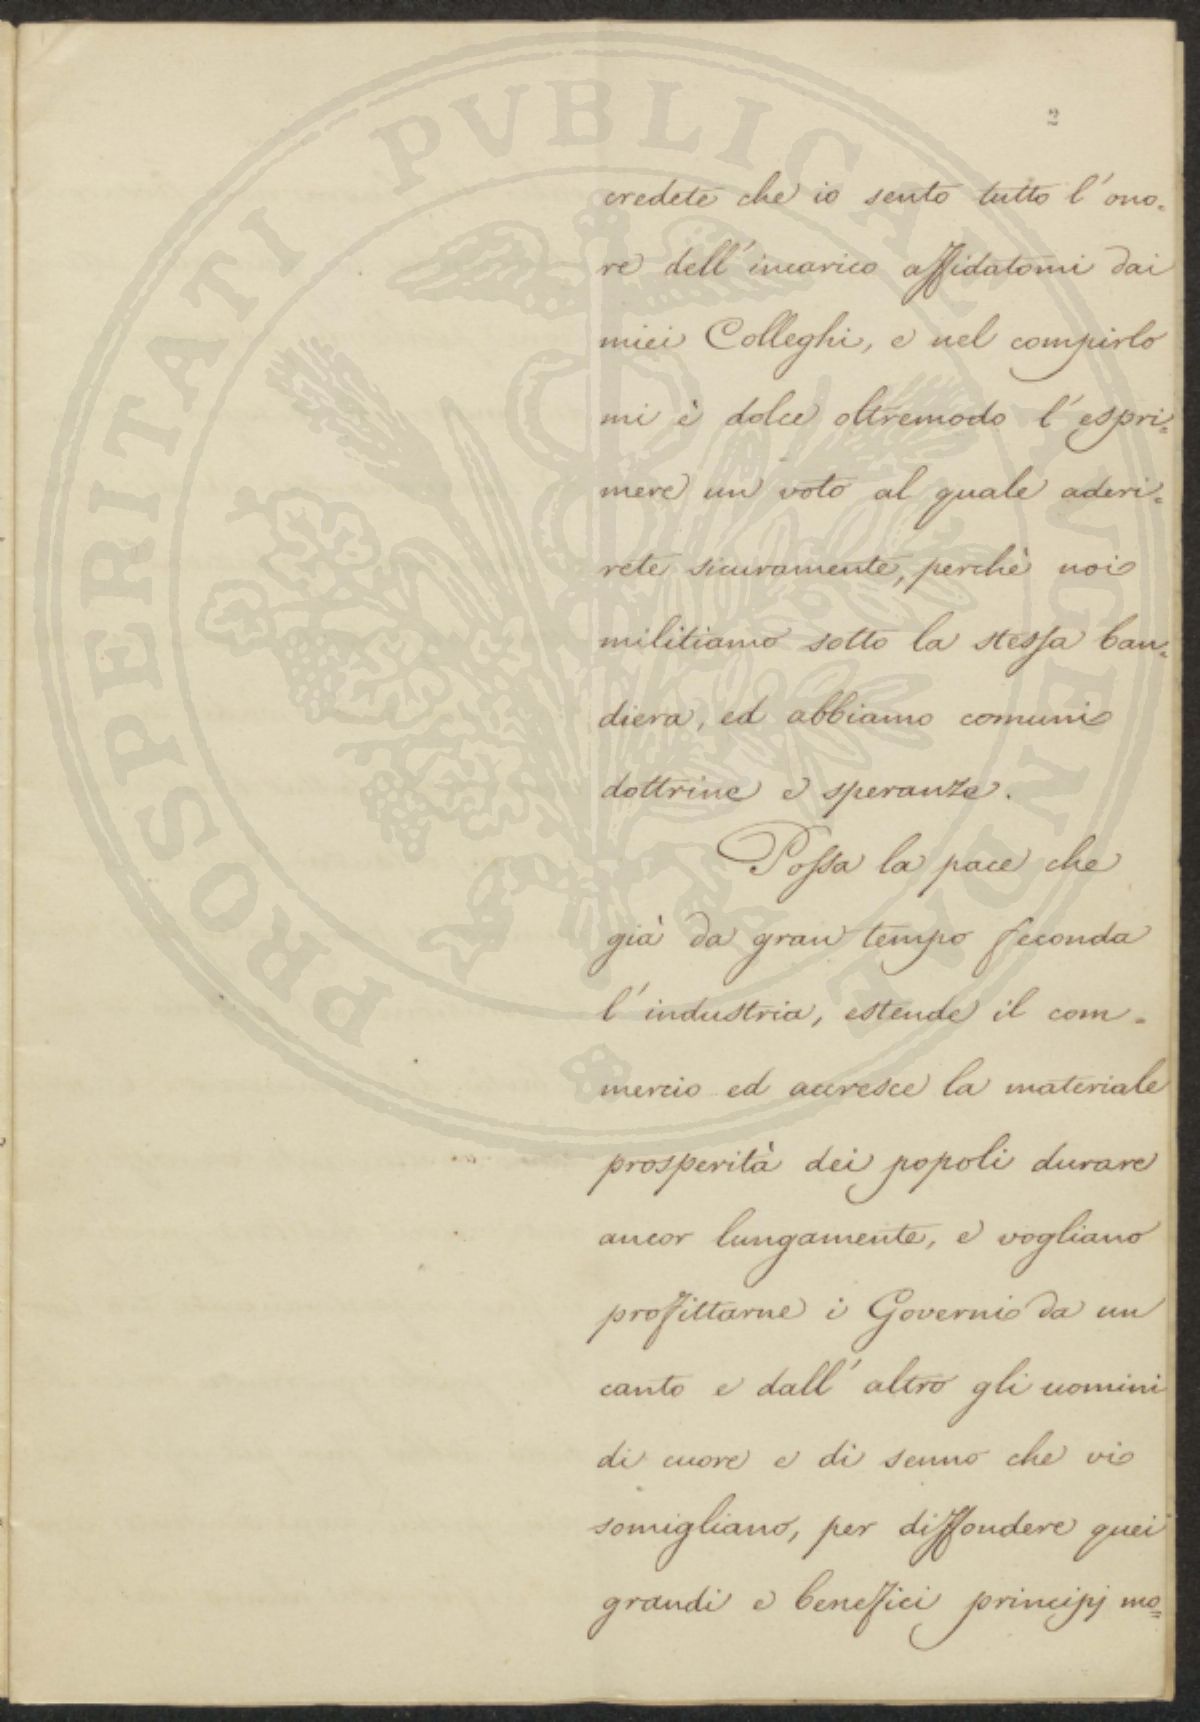 PROSPERITATI PVBLICAE AVGENDAE
2
credete che io sento tutto l'ono=
re dell'incarico affidatomi dai
miei Colleghi, e nel compirlo
mi è dolce oltremodo l'espri=
mere un voto al quale aderi=
rete sicuramente, perchè noi
militiamo sotto la stessa ban=
diera, ed abbiamo comuni
dottrine e speranze.
Possa la pace che
già da gran tempo feconda
l'industria, estende il com=
mercio ed accresce la materiale
prosperità dei popoli durare
ancor lungamente, e vogliano
profittarne i Governi da un
canto e dall'altro gli uomini
di cuore e di senno che vi
somigliano, per diffondere quei
grandi e benefici principj mo=